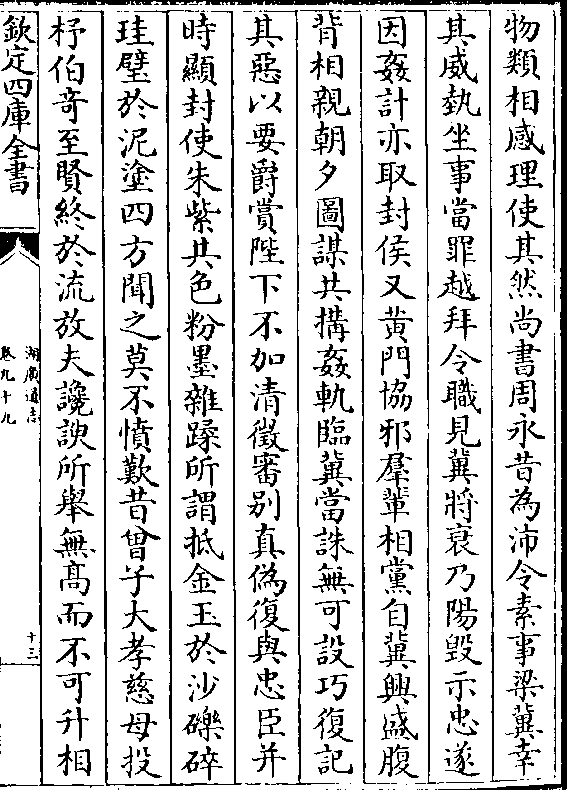 物類相感理使其然尚書周永昔為沛令素事梁冀幸
其威埶坐事當罪越拜令職見冀將衰乃陽毀示忠遂
因姦計亦取封侯又黄門協邪羣輩相黨自冀興盛腹
背相親朝夕圖謀共搆姦軌臨冀當誅無可設巧復記
其惡以要爵賞陛下不加清徵審别真偽復與忠臣并
時顯封使朱紫共色粉墨雜蹂所謂抵金玉於沙礫碎
珪璧於泥塗四方聞之莫不憤歎昔曾子大孝慈母投
杼伯奇至賢終於流放夫讒諛所舉無髙而不可升相
欽定四庫全書
湖廣通志
卷九十九
十三